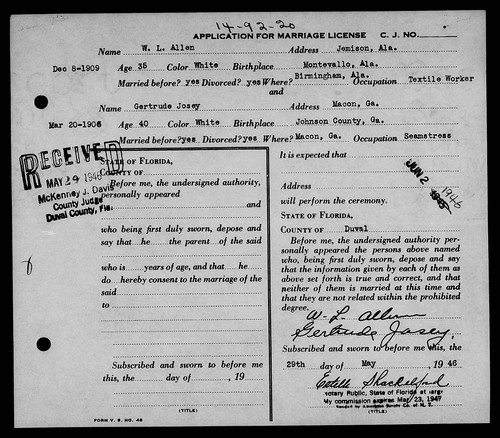 14-92-20
APPLICATION FOR MARRIAGE LICENSE C. J. NO.
Name W. L. Allen Address Jemison, Ala.
Dec 8-1909 Age 35 Color White Birthplace Montevallo, Ala.
Married before? yes Divorced? yes Where? Birmingham, Ala. Occupation Textile Worker
and
Name Gertrude Josey Address Macon, Ga.
Mar 20-1906 Age 40 Color White Birthplace Johnson County, Ga.
Married before? yes Divorced? yes Where? Macon, Ga. Occupation Seamstress
RECEIVED
MAY 29 1946
McKenney J. Davis
County Judge
Duval County, Fla.
STATE OF FLORIDA,
COUNTY OF
Before me, the undersigned authority,
personally appeared
and
who being first duly sworn, depose and
say that he the parent of the said
who is years of age, and that he
do hereby consent to the marriage of the
said
to
Subscribed and sworn to before me
this, the day of , 19
(TITLE)
FORM V. S. NO. 43
It is expected that
JUN 2 1946
Address
will perform the ceremony.
STATE OF FLORIDA,
COUNTY OF Duval
Before me, the undersigned authority, per-
sonally appeared the persons above named
who, being first duly sworn, depose and say
that the information given by each of them as
above set forth is true and correct, and that
neither of them is married at this time and
that they are not related within the prohibited
degree.
W. L. Allen
Gertrude Josey
Subscribed and sworn to before me this, the
29th day of May 1946
Estelle Shackelford
Notary Public, State of Florida at large
My commission expires May 23, 1947
(TITLE)